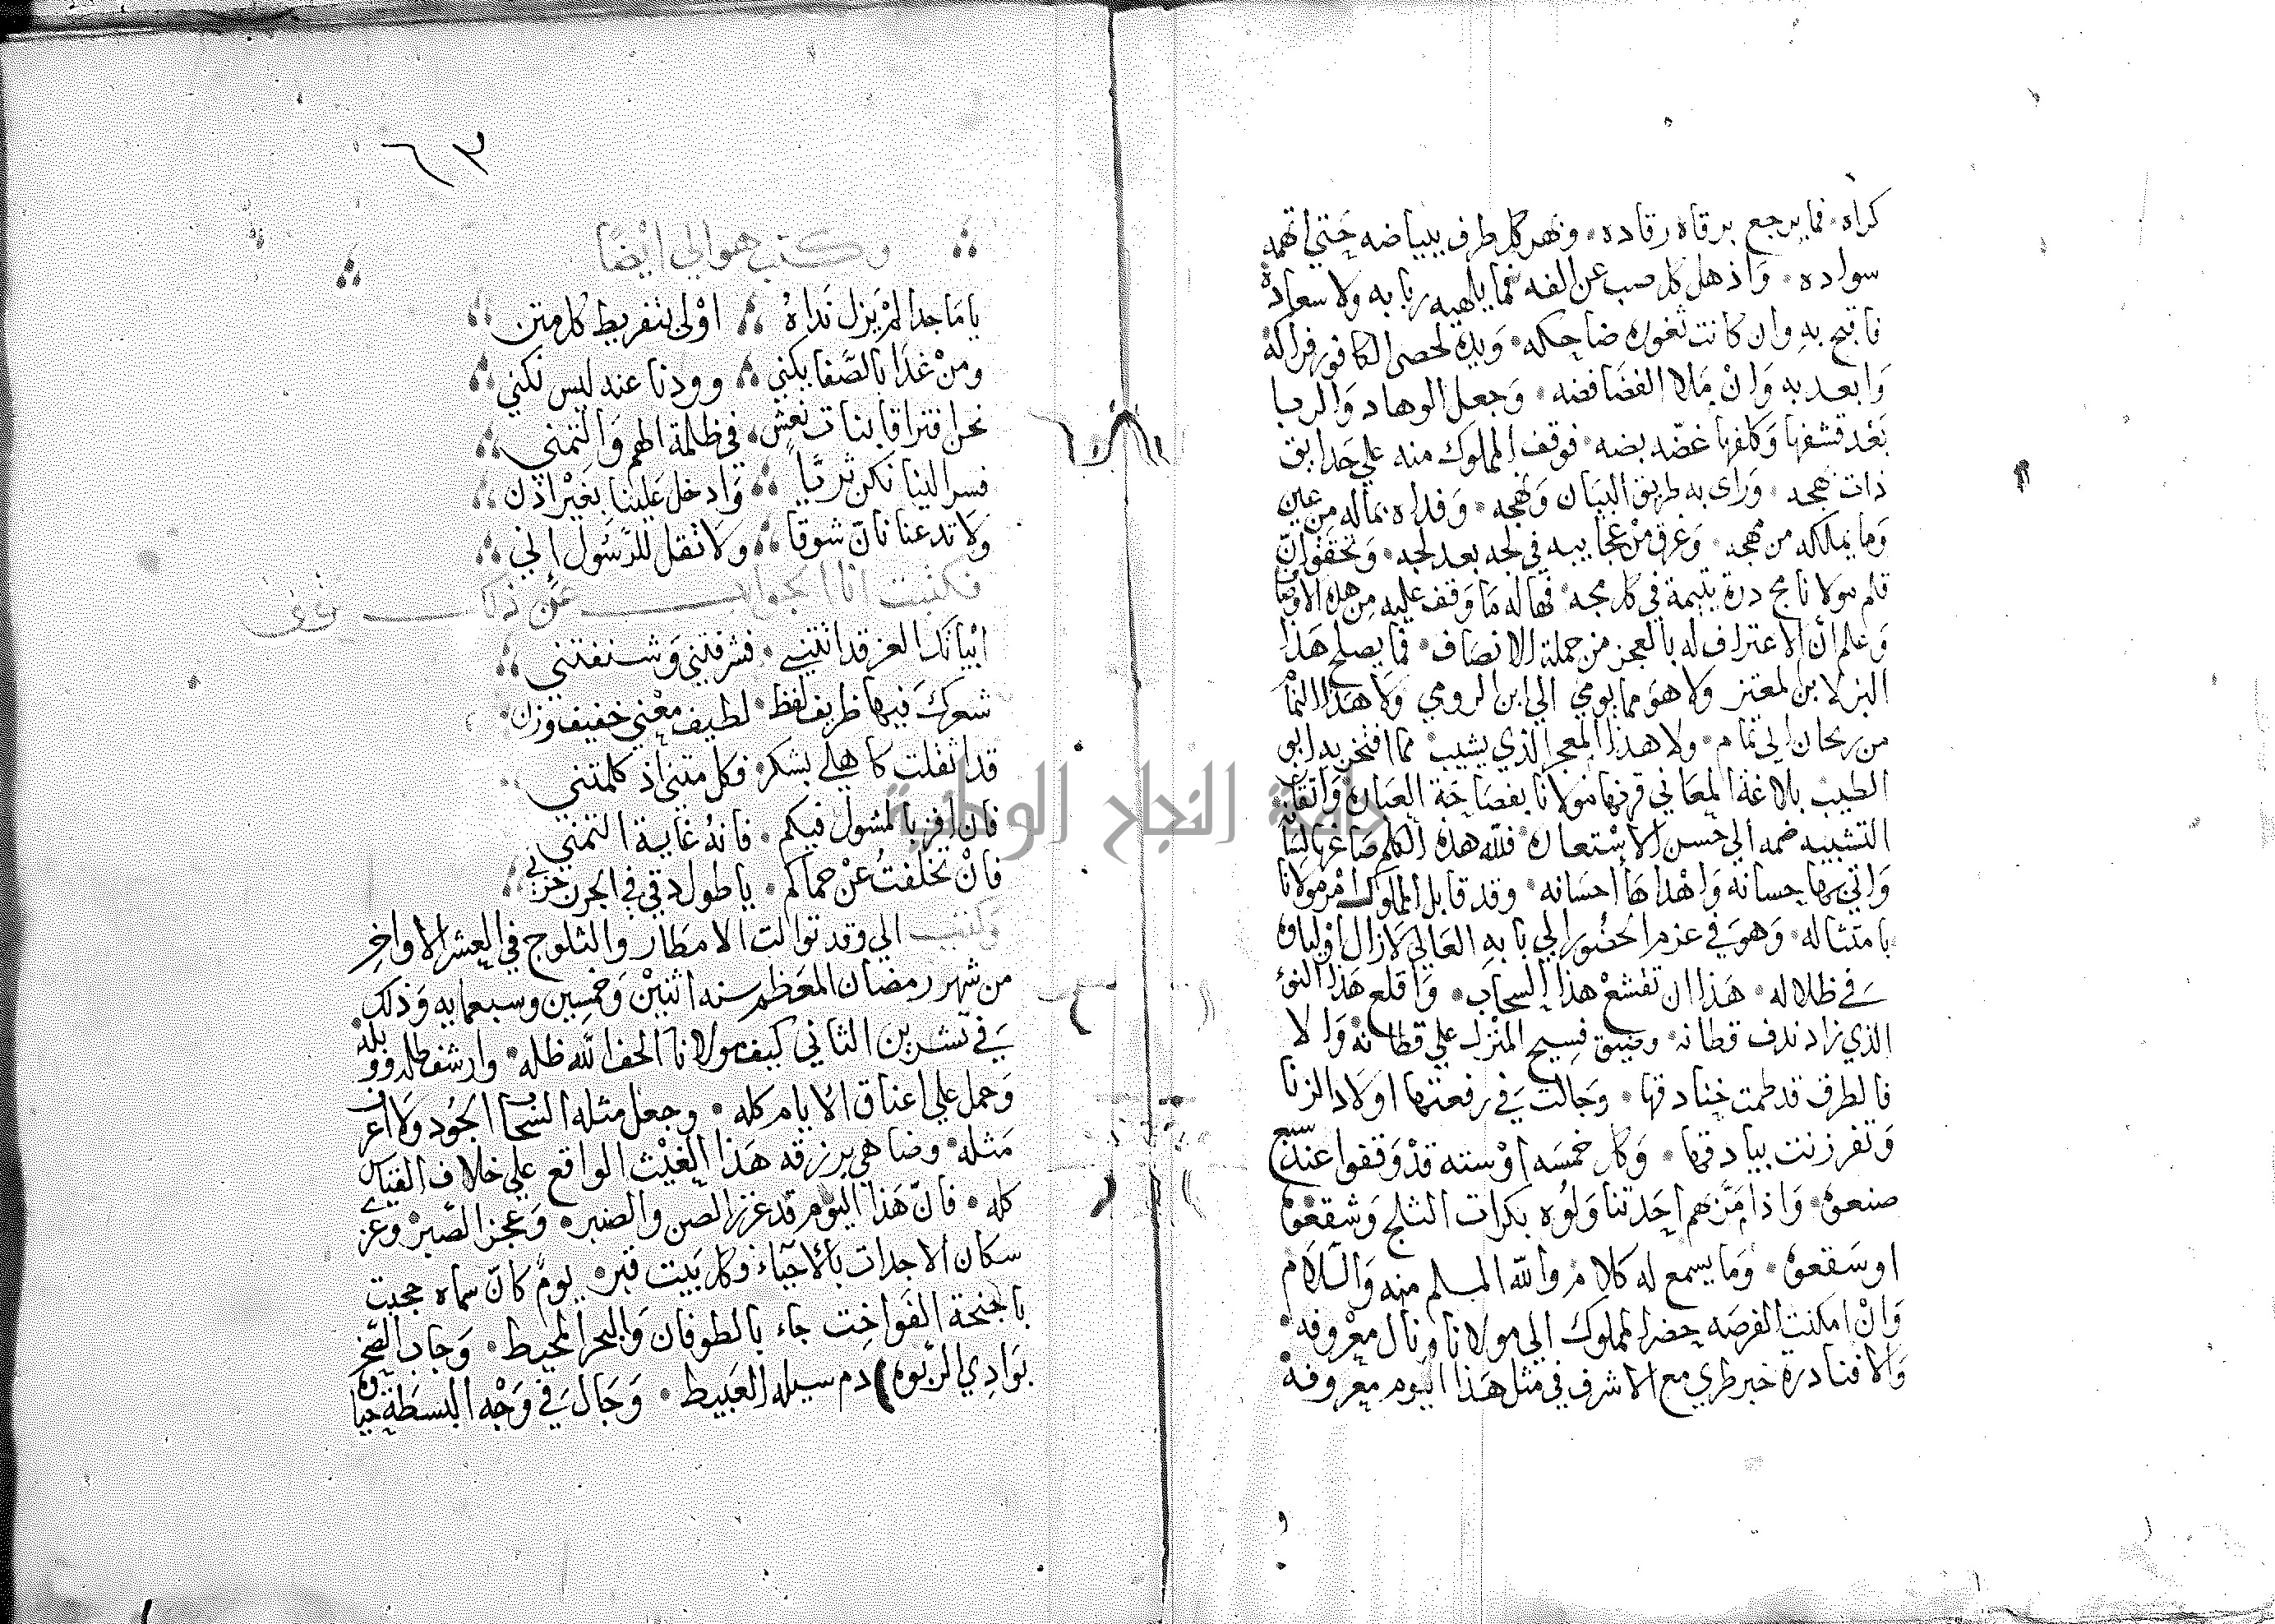 كراه۰ فما يرجع برقاه رقاده۰ وبهر كل طرف ببياضه حتي اتهمه
سواده۰ وَاذهل كل صب عن الفه فما يلهيه ربابه ولا سعاده
فاقبح بهِ وان كانت ثغوره ضاحكه۰ وَيده لحصى الكافور فراكه
وَابعد به وَانْ مَلا الفضَا فضه۰ وَجعل الوهاد وَالربا
بَعْد قشفها وَكلفها غضّه بضه۰ فوقف المملوك منه علي حَدايق
ذات بهجه۰ وَراى به طريق البَيان وَنهجه۰ وَفداه بماله من عين
وَما يملكه من مهجه۰ وَغرق مِنْ عجايبه في لجه بعد لجه۰ وَتحقق انّ
قلم مولانا مج درة يتيمة في كل مجه۰ فهاله مَا وَقف عليه مِن هذه الاوصَا
وَعلم أن الاعتراف له بالعجز من جملة الانصَاف۰ فمَا يصلح هَذا
البز لابن المعتز ولا هوَ مما يومي الي ابن الرومي وَلا هَذا النمَا
من ريحان ابي تمام۰ ولا هذا المعجز الذي يشيب مما افتخر به ابو
الطيب بلاغة المعَاني قرنها مَولانا بفصَاحَة العبَاره وَاتقان
التشبيه ضمه الي حُسن الاسْتعاره فلله هذه الكلم صَاغها لسَا
وَاتي بها حسانه وَاهْداها احسَانه۰ وقد قابل المملوك امْر مولانا
بامتثاله۰ وَهوَ في عزم الحُضور الي بابهِ العَالي لازال اوليَاوه
في ظلاله۰ هَذا ان تقشعْ هذا السحاب۰ وَاقلع هَذا النوْ
الذي زاد ندف قطانه۰ وضيق فسِيح المنزل علي قطانه وَالا
فالطرف قد طمت خنادقها۰ وَجالت في رقعتها اولاد الزنا
وَتفرزنت بيادقها۰ وَكل خمسَه اوْ سته قدْ وَقفوا عند
صنعوه۰ وَاذا مَر بهم احَد تناوَلوُه بكرات الثلج وَشقعوْه
اوسَقعوه۰ وَما يسمع له كلام والله المسلم منه وَالسلام
وَانْ امكنت الفرصَه حضر المملوك الي مولانا ونال معْروفه۰
وَالا فنادرة خبز طري مع الاشرف في مثل هَذا اليَوم معروفة
٦٣
وكتب هو الي ايضًا
يا مَاجدا لمْ يَزل نَداهُ اوْلى بتقريظ كل متن
ومنْ غدا بالصَّفا يكني وودنا عنه ليس نكني
نحن افتراقا بنات نعش في ظلمة الهم وَالتمني
فسر الينا نكن ثريَّا وَادخل عَلينا بغيْر اذن
وَلا تدعنا نانّ شوقا ولا تقل للرسُول اني
فكتبت انا الجواب عَن ذلك
ابْياتك العز قد اتتني۰ فشرفتني وَشنفتني
شعرك فيها ظريف لفظ۰ لطيف معْني خفيف وزن
قد اثقلت كاهلي بشكر۰ فكل متني اذ كلمتني
فان افز بالمثول فيكم۰ فانهُ غاية التمني
فانْ تخلفتُ عنْ حماكم۰ يا طول دقي في الجرن حزني
وَكتب الي وقد توالت الامطار والثلوج في العشر الاواخِر
من شهر رمضان المعَظم سنه اثنيْن وَخمسِين وسبعمايه وَذلك
في تشرين الثاني كيف مولانا الحف الله ظله۰ وارشف طله ووبله
وَحمل علي اعناق الايام كله۰ وجعل مثله السُحا الجُود وَلا اعرف
مَثله۰ وضاهي برزقه هَذا الغيْث الواقع علي خلاف القياس
كله۰ فانّ هَذا اليَوم قد عزز الصن والصنبر۰ وَعجز الصَّبرْ وعز
سكان الاجداث بالاحيَاء فكل بَيت قبر۰ يومٌ كانّ سماه حجبت
باجنحة الفَواخِت جاء بالطوفان وَالبحر المحيط۰ وَجاب الصّخر
بوَادِي الرّبوه دم سيله العَبيط۰ وَجال في وَجْه البسَطة